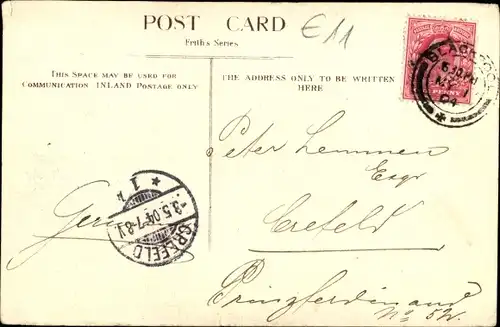 POST CARD
Frith's Series
E11
THIS SPACE MAY BE USED FOR
COMMUNICATION INLAND POSTAGE ONLY.
THE ADDRESS ONLY TO BE WRITTEN
HERE
PENNY
BLACKPOOL
MY 1
04
Peter Lemmen
Esqr
Crefeld
Prinzferdinand
No 52.
CREFELD
3.5.04.7-8V.
* 1 k